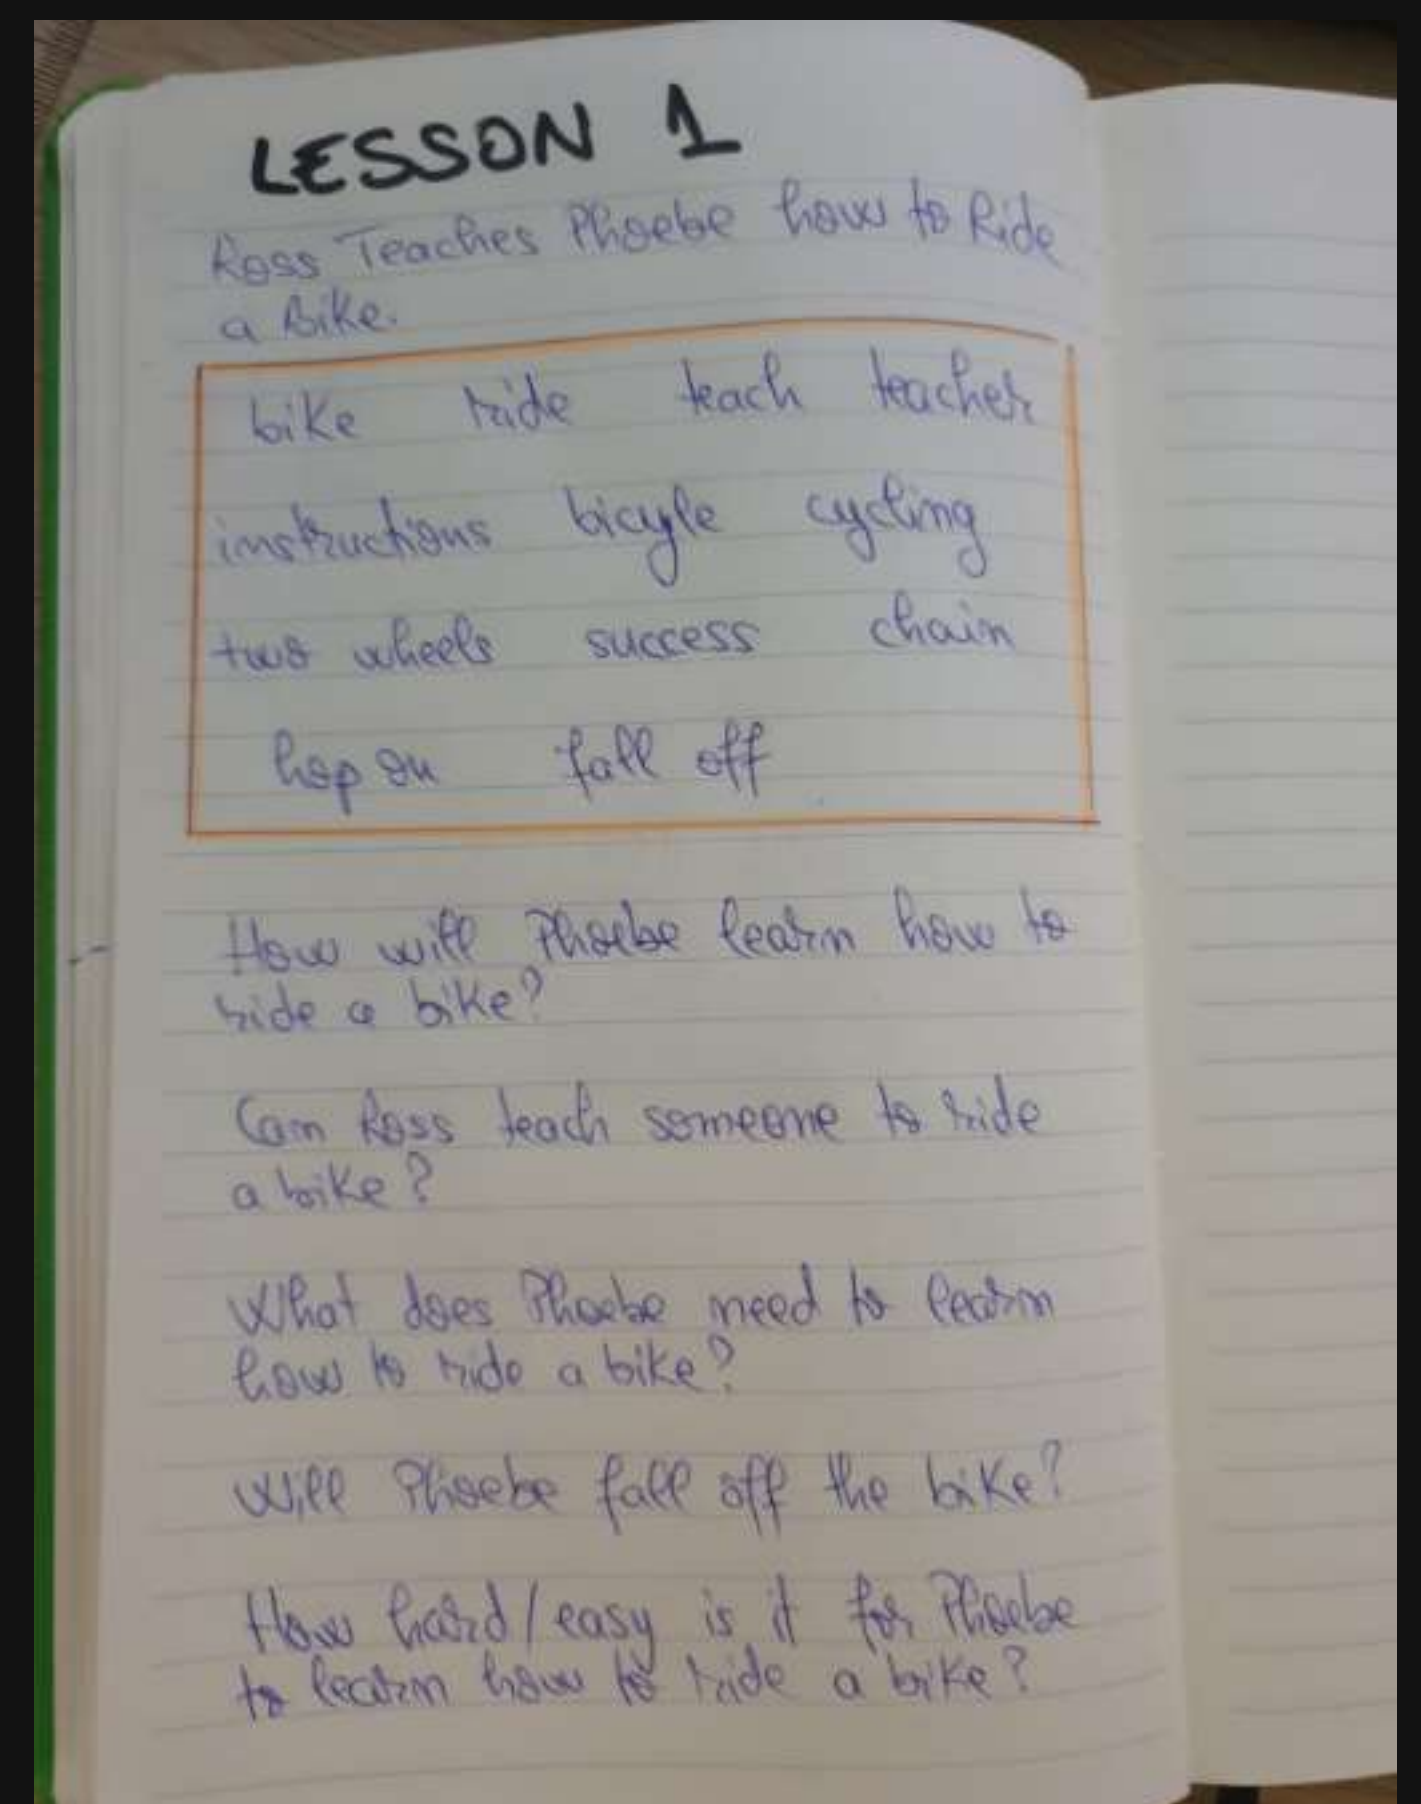 LESSON 1
Ross Teaches Phoebe how to Ride
a Bike.
bike ride teach teacher
instructions bicyle cycling
two wheels success chain
hop on fall off
How will Phoebe learn how to
ride a bike?
Can Ross teach someone to ride
a bike?
What does Phoebe need to learn
how to ride a bike?
Will Phoebe fall off the bike?
How hard/easy is it for Phoebe
to learn how to ride a bike?